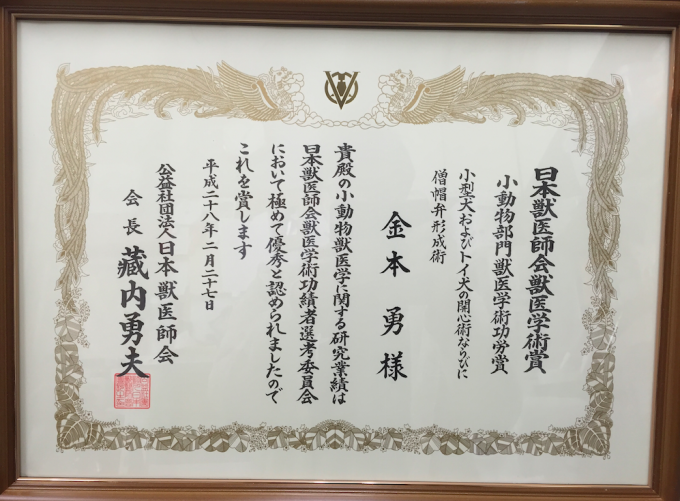 日本獣医師会獣医学術賞
小動物部門獣医学術功労賞
小型犬およびトイ犬の開心術ならびに
僧帽弁形成術
金本勇様
貴殿の小動物獣医学に関する研究業績は
日本獣医師会獣医学術功績者選考委員会
において極めて優秀と認められましたので
これを賞します
平成二十八年二月二十七日
公益社団法人日本獣医師会
会長 藏内勇夫